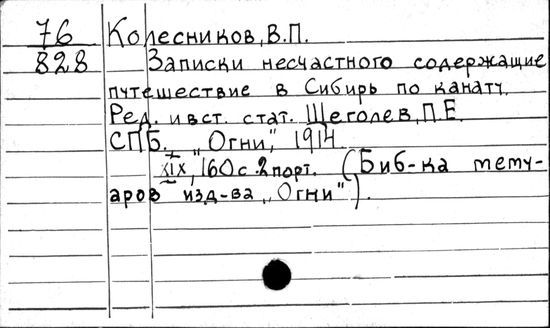 76 Колесников, В.П.
828 Записки несчастного содержащие
путешествие в Сибирь по канату.
Ред. и вст. стат. Щеголев, П.Е.
СПБ., „Огни", 1914
XIX, 160 с. 2 порт. (Биб-ка мему-
аров изд-ва „Огни").